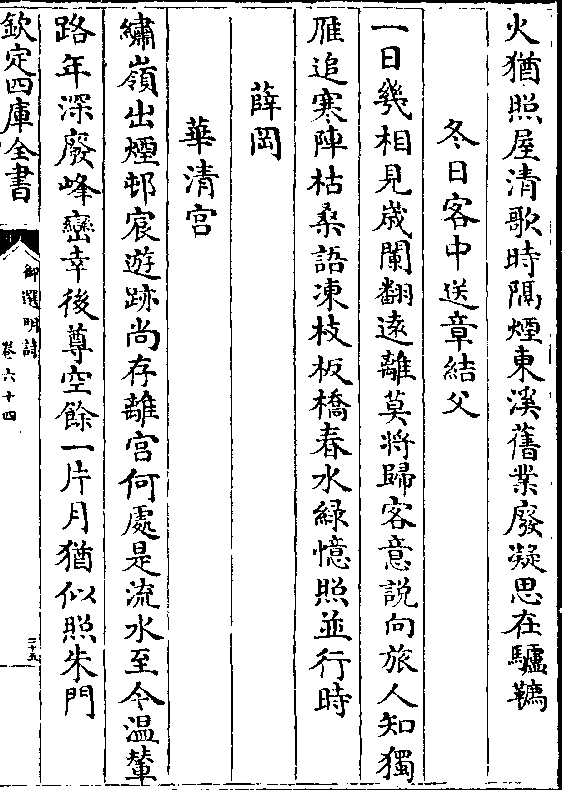 火猶照屋清歌時隔煙東溪舊業廢凝思在驢韉
冬日客中送章結父
一日幾相見歳闌翻遠離莫將歸客意説向旅人知獨
雁追寒陣枯桑語凍枝板橋春水緑憶照並行時
薛岡
華清宫
繡嶺出煙邨宸遊跡尚存離宫何處是流水至今温輦
路年深廢峰巒幸後尊空餘一片月猶似照朱門
欽定四庫全書
御選明詩
卷六十四
二十五